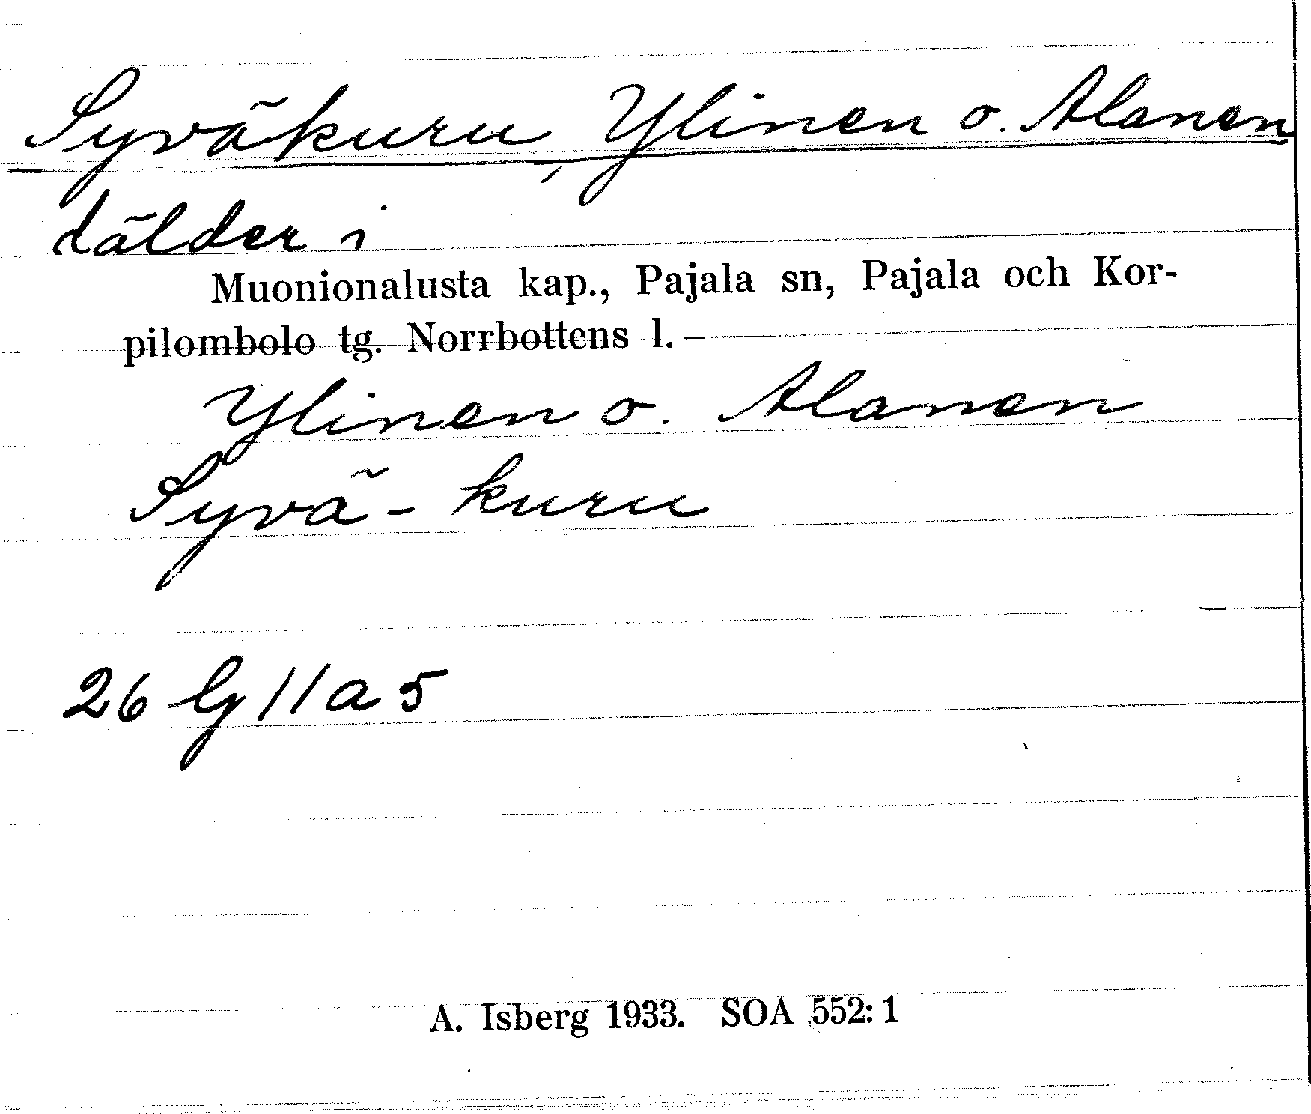 Syväkuru, Ylinen o. Alanen
dälder i
Muonionalusta kap., Pajala sn, Pajala och Kor-
pilombolo tg. Norrbottens l.
Ylinen o. Alanen
Syvä-kuru
26 G 11 a 5
A. Isberg 1933. SOA 552:1